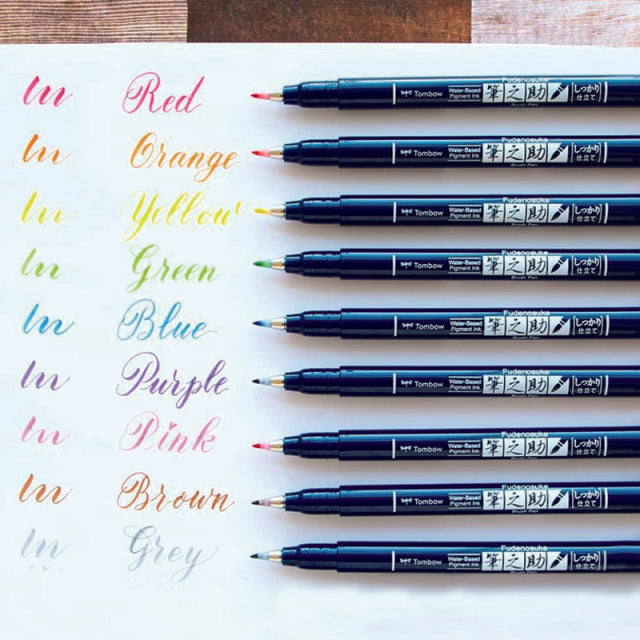 un Red
Fudenosuke
Tombow Water-Based Pigment Ink 筆之助 しっかり仕立て
Brush Pen
un Orange
Fudenosuke
Tombow Water-Based Pigment Ink 筆之助 しっかり仕立て
Brush Pen
un Yellow
Fudenosuke
Tombow Water-Based Pigment Ink 筆之助 しっかり仕立て
Brush Pen
un Green
Fudenosuke
Tombow Water-Based Pigment Ink 筆之助 しっかり仕立て
Brush Pen
un Blue
Fudenosuke
Tombow Water-Based Pigment Ink 筆之助 しっかり仕立て
Brush Pen
un Purple
Fudenosuke
Tombow Water-Based Pigment Ink 筆之助 しっかり仕立て
Brush Pen
un Pink
Fudenosuke
Tombow Water-Based Pigment Ink 筆之助 しっかり仕立て
Brush Pen
un Brown
Fudenosuke
Tombow Water-Based Pigment Ink 筆之助 しっかり仕立て
Brush Pen
un Grey
Fudenosuke
Tombow Water-Based Pigment Ink 筆之助 しっかり仕立て
Brush Pen